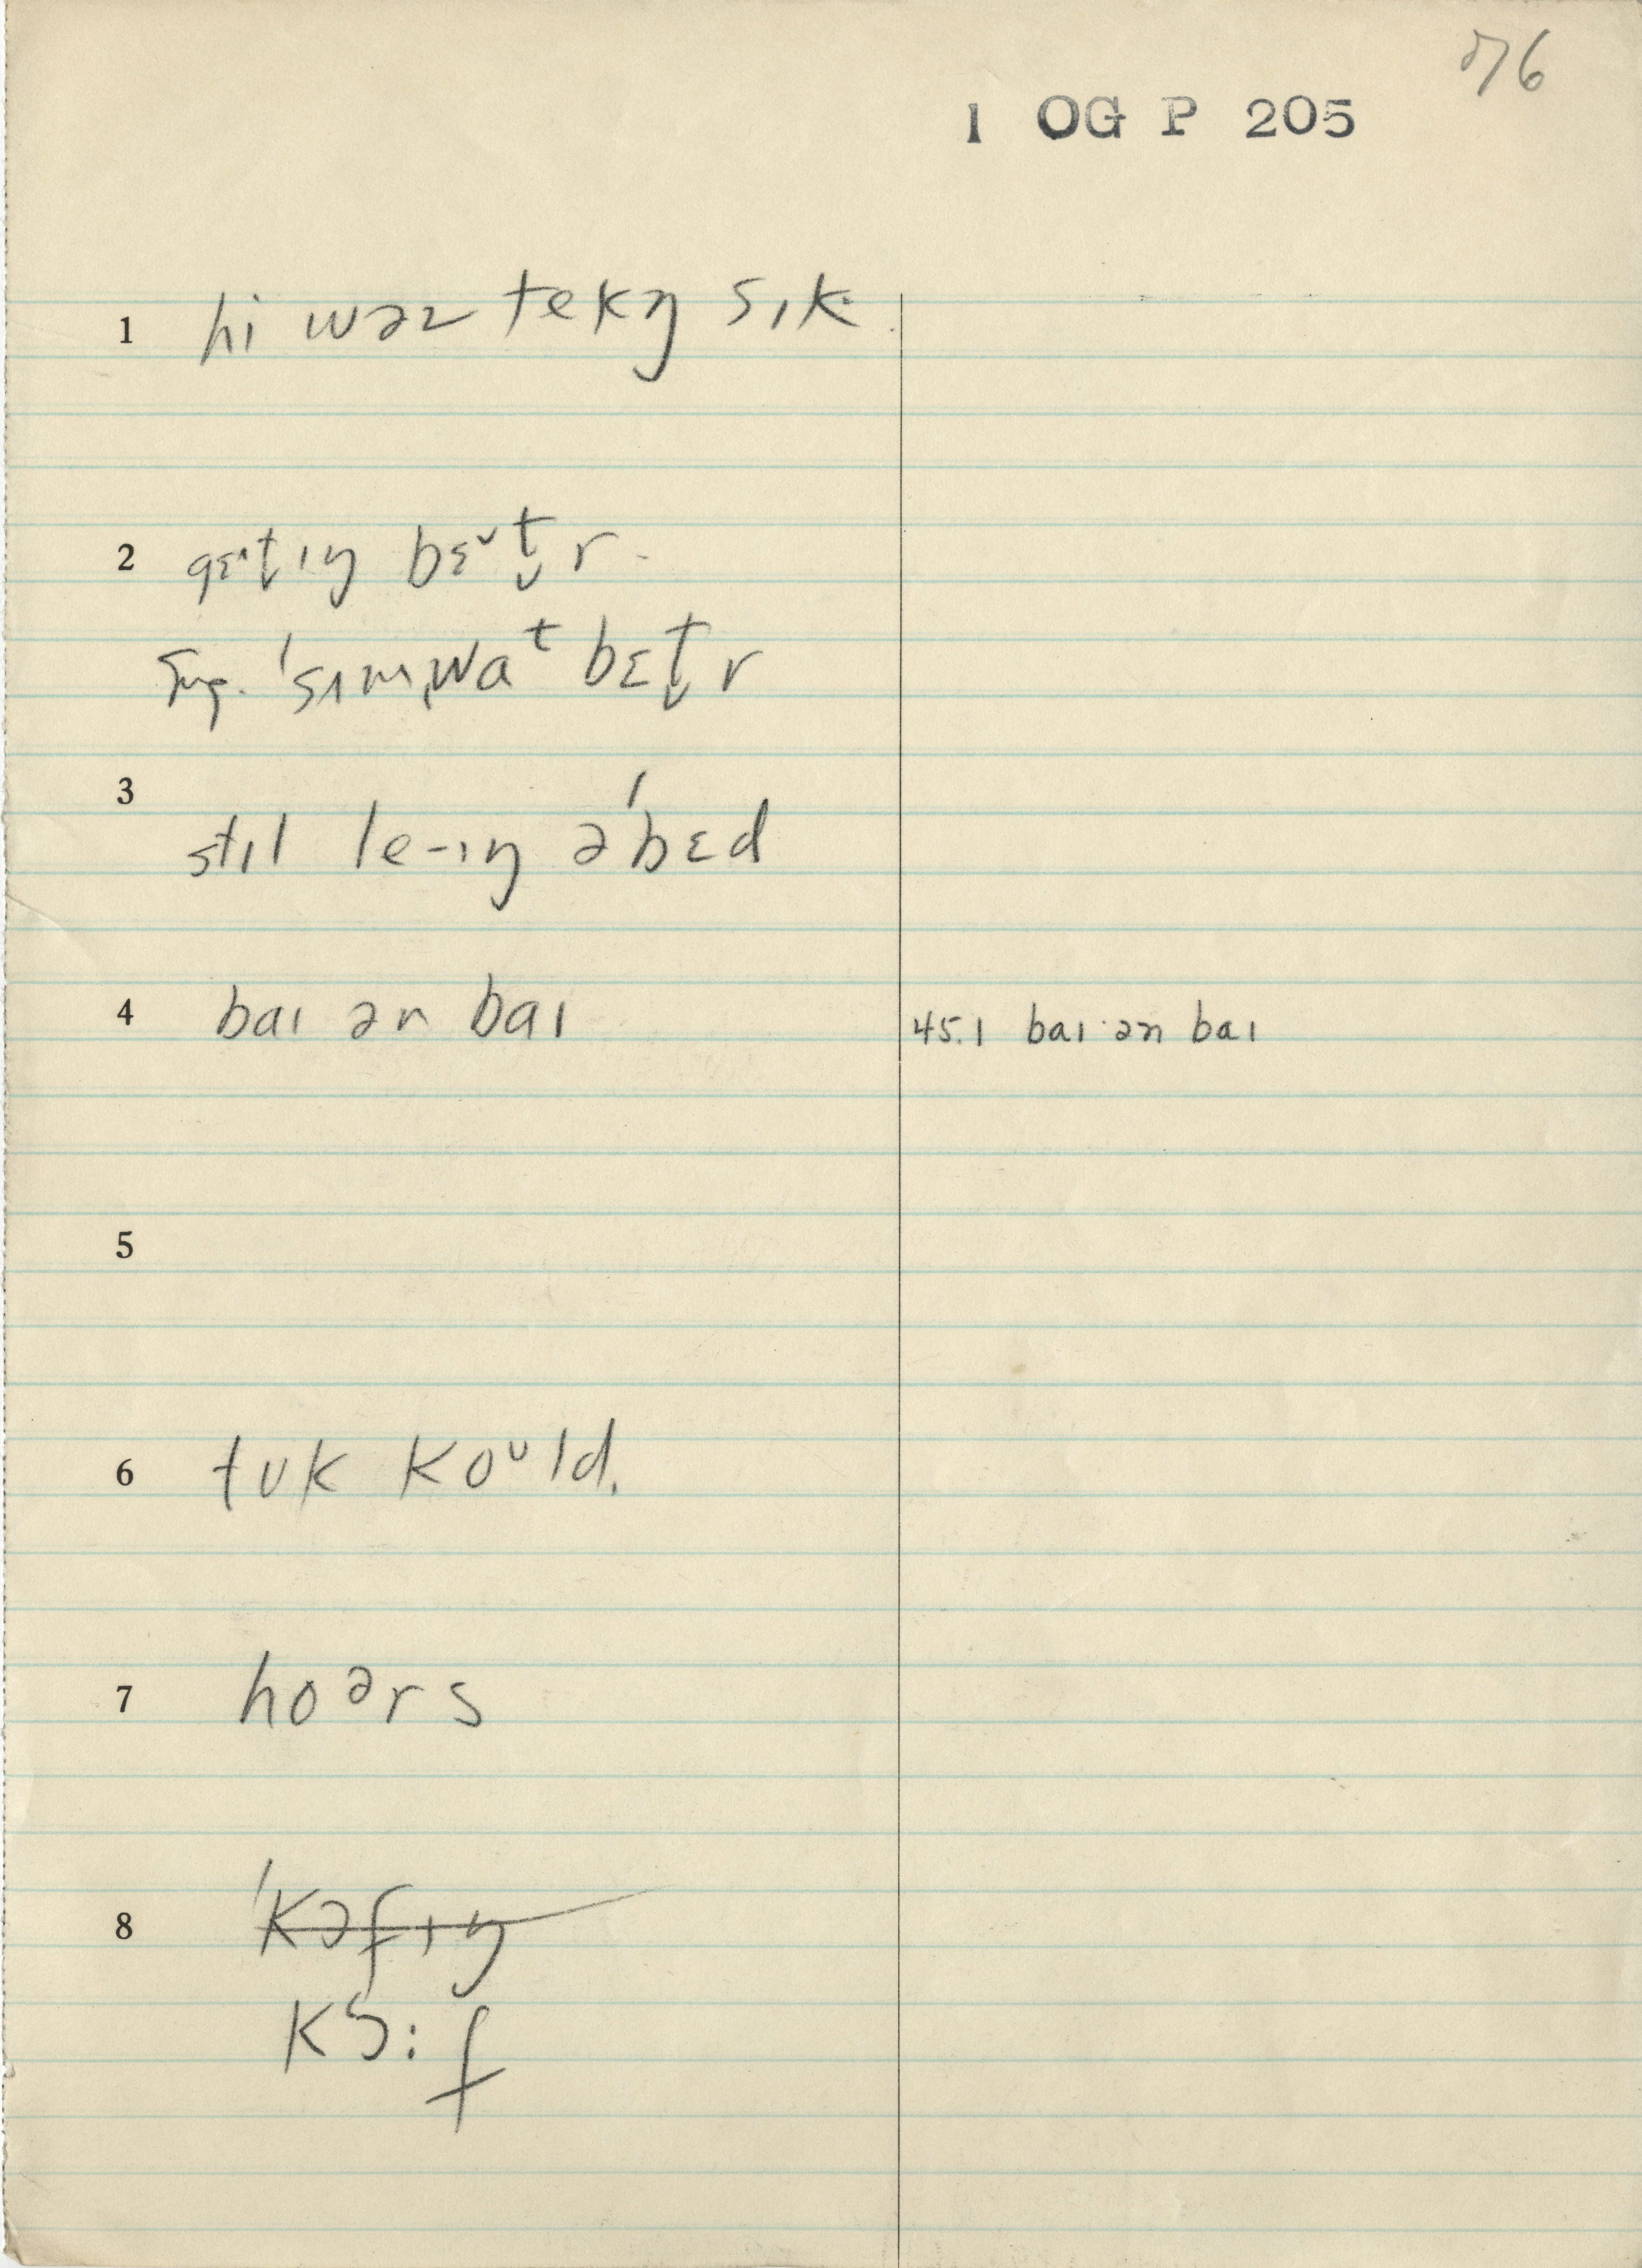 76
1 OG P 205
1 hi wəz tekŋ sɪk.
2 gɛ^t̬ɪŋ bɛ˅t̬r.
Sug. 'sʌmˌwaᵗ bɛt̬r
3 stɪl le-ɪŋ ə'bɛd
4 baɪ ən baɪ 45.1 baɪ ən baɪ
5
6 tʊk koᵘld.
7 hoᵊrs
8 'kɔfɪŋ
kɔ:f